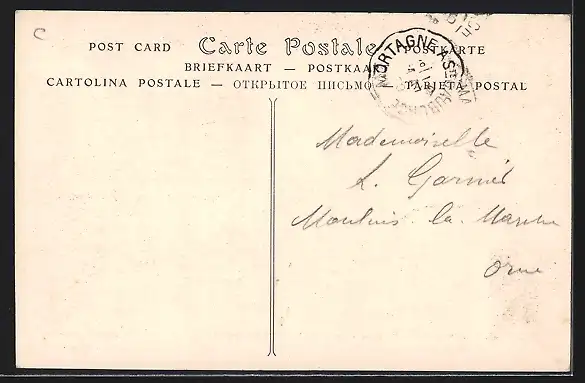 C
POST CARD Carte Postale POSTKARTE
BRIEFKAART — POSTKAA
CARTOLINA POSTALE — ОТКРЫТОЕ ПИСЬМО TARJETA POSTAL
MORTAGNE A STE
Mademoiselle
L. Garnier
Moulins la Marche
Orne